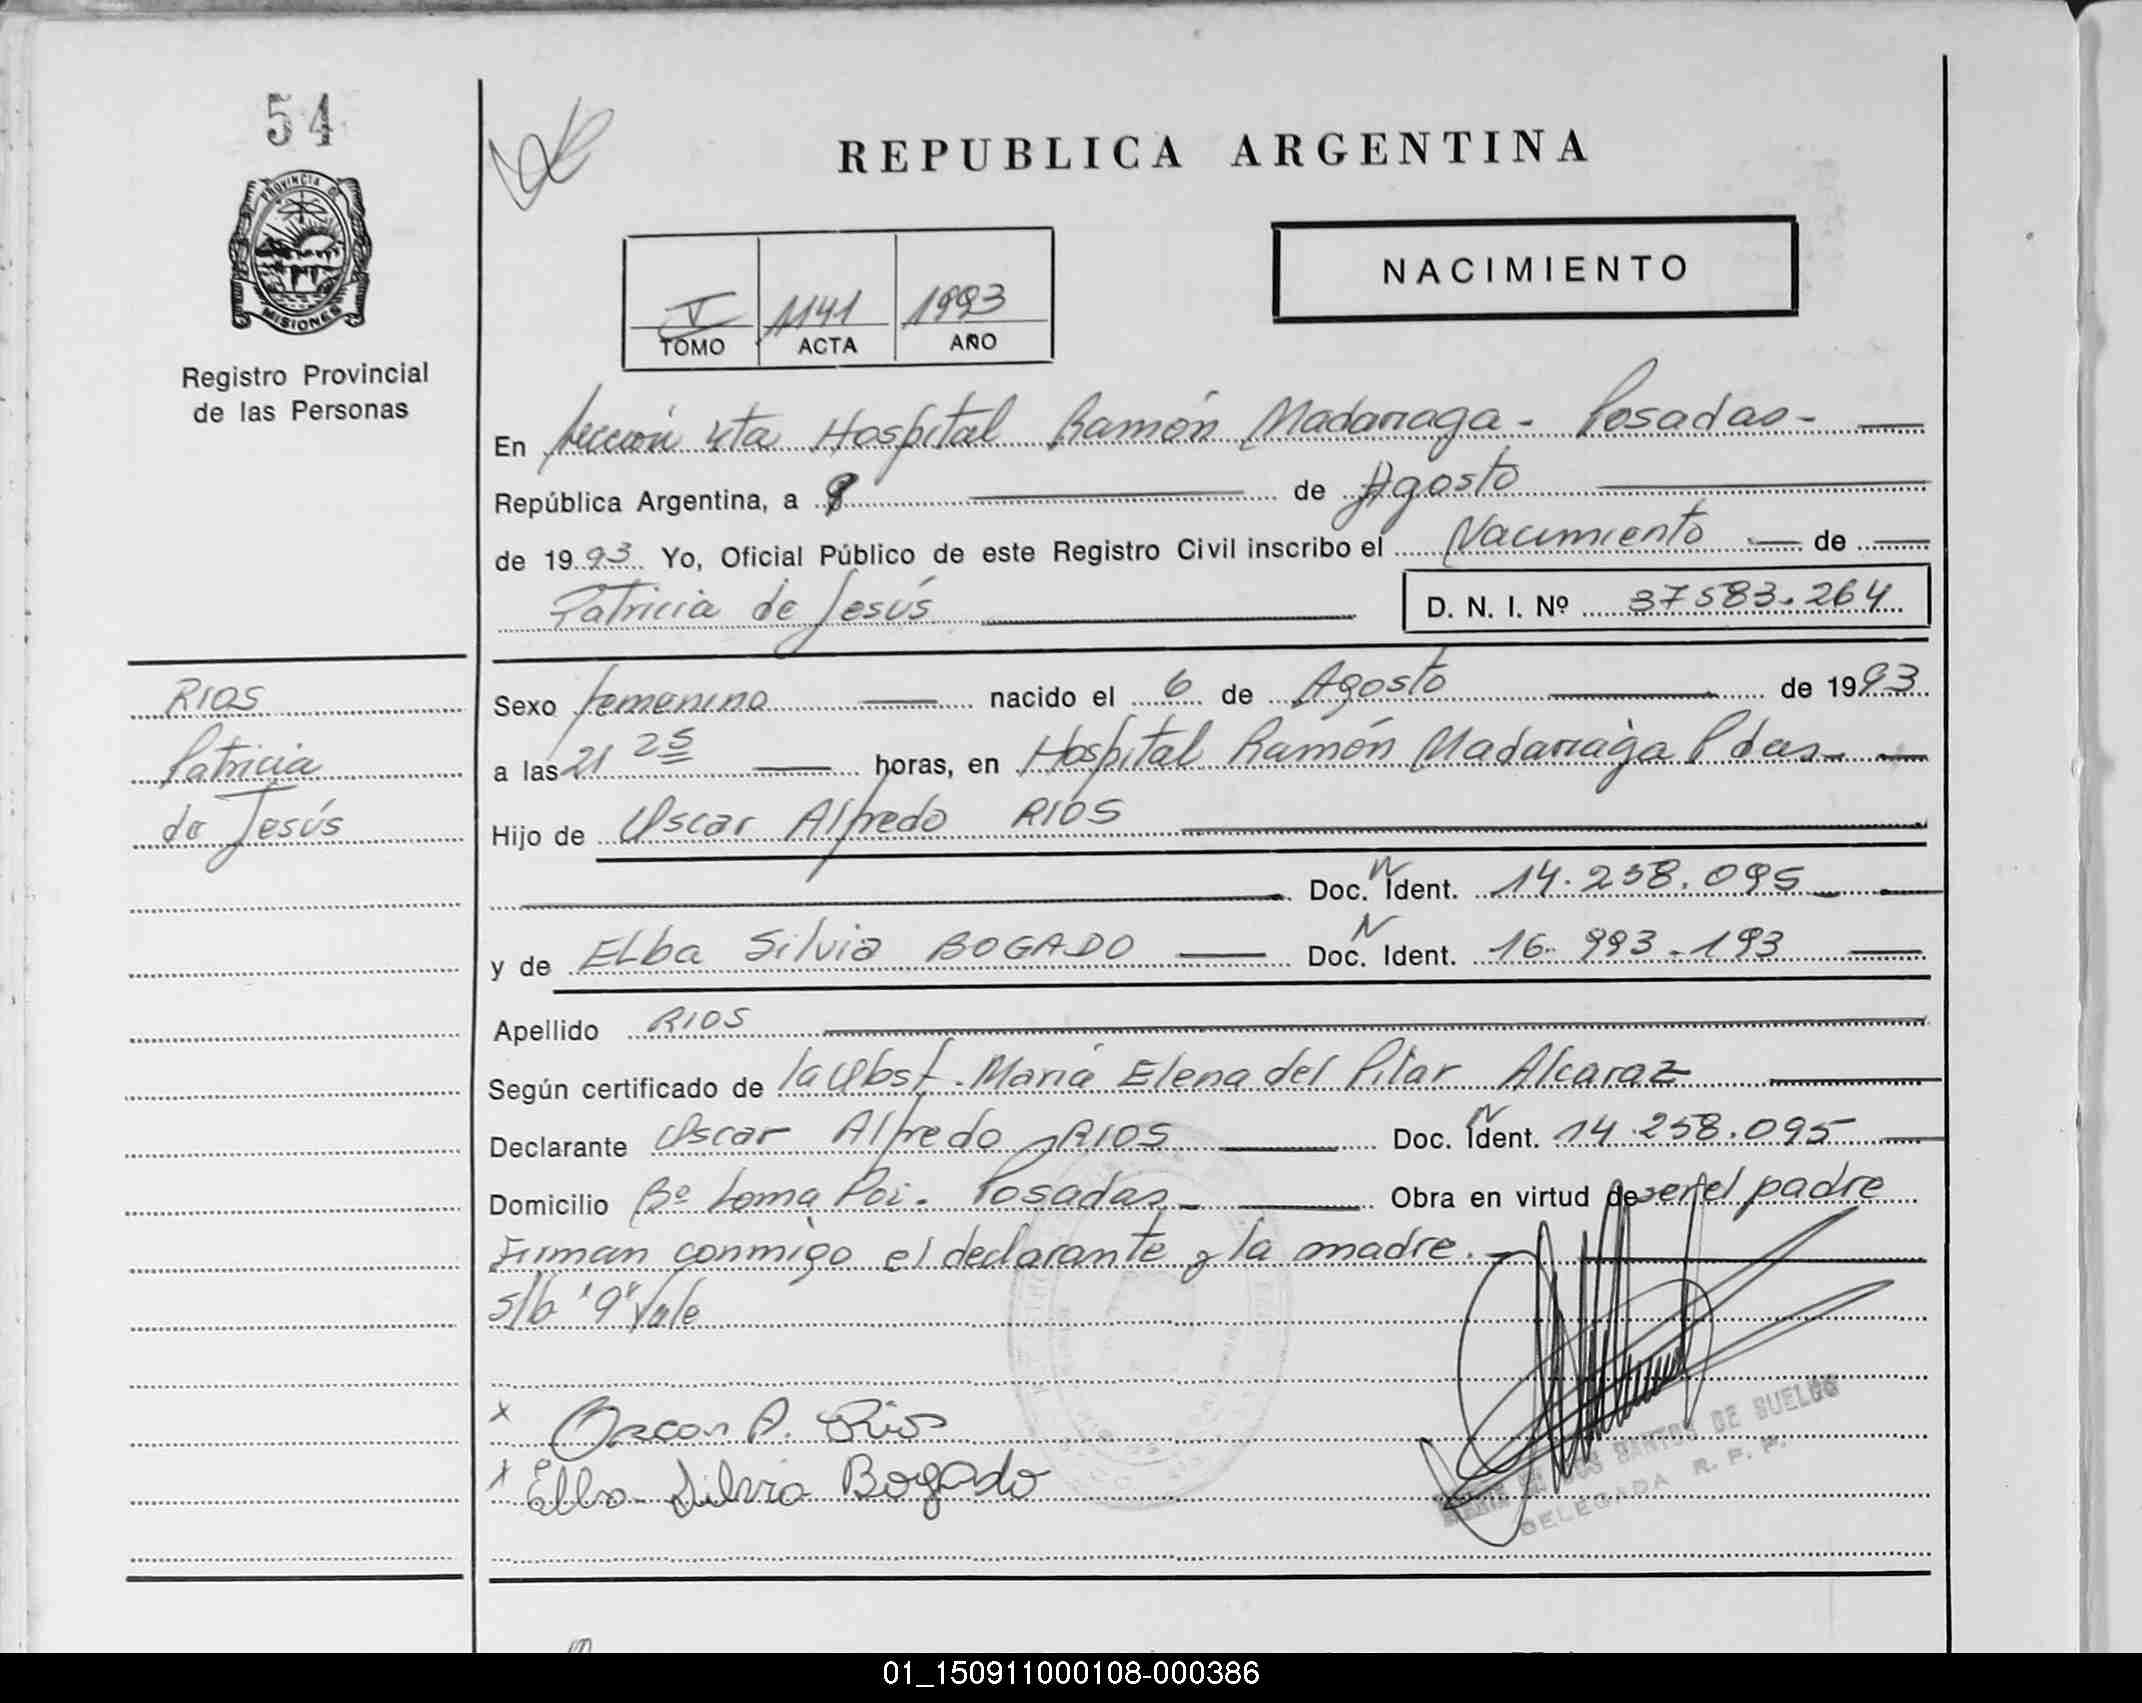 54
REPUBLICA ARGENTINA
PROVINCIA DE
MISIONES
Registro Provincial
de las Personas
NACIMIENTO
V 1141 1993
TOMO ACTA AÑO
En Sección 4ta Hospital Ramón Madariaga - Posadas -
República Argentina, a 9 de Agosto
de 1993 Yo, Oficial Público de este Registro Civil inscribo el Nacimiento de
Patricia de Jesús
D. N. I. Nº 37583.264
RIOS
Patricia
de Jesús
Sexo femenino nacido el 6 de Agosto de 1993
a las 21 25 horas, en Hospital Ramón Madariaga Pdas -
Hijo de Oscar Alfredo RIOS
Doc. N Ident. 14.258.095
y de Elba Silvia BOGADO Doc. N Ident. 16.993.193
Apellido RIOS
Según certificado de la Obst. María Elena del Pilar Alcaraz
Declarante Oscar Alfredo RIOS Doc. N Ident. 14.258.095
Domicilio Bº Loma Poi. Posadas Obra en virtud de ser el padre
Firman conmigo el declarante y la madre.
s/b "9" Vale
x Oscar A. Rios
x Elba Silvia Bogado
SANTOS DE BUELOS
DELEGADA R. P. P.
01_150911000108-000386